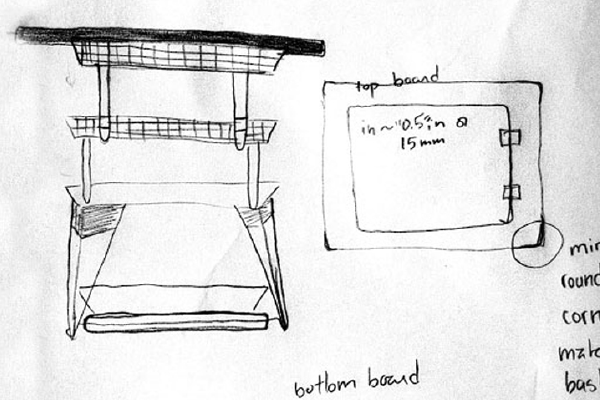 top board
in ~ "0.5" in @
15 mm
min
round
corn
mate
bas
bottom board